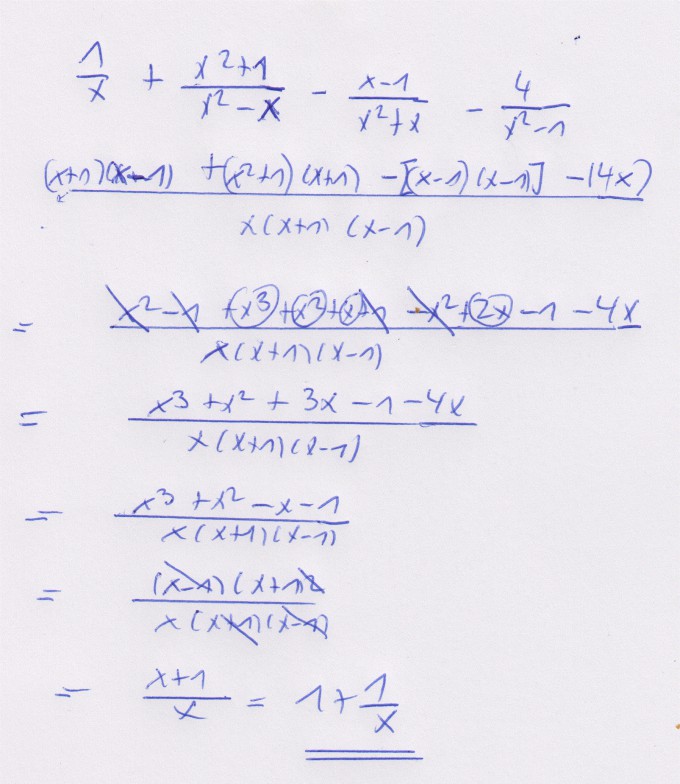 1/x + (x²+1)/(x²-x) - (x-1)/(x²+x) - 4/(x²-1)
((x+1)(x-1) +(x²+1)(x+1) -[(x-1)(x-1)] -(4x))/(x(x+1)(x-1))
= (x²-1 +x³+x²+x+1 -x²+2x-1-4x)/(x(x+1)(x-1))
= (x³+x²+3x-1-4x)/(x(x+1)(x-1))
= (x³+x²-x-1)/(x(x+1)(x-1))
= ((x-1)(x+1)²)/(x(x+1)(x-1))
= (x+1)/x = 1+1/x